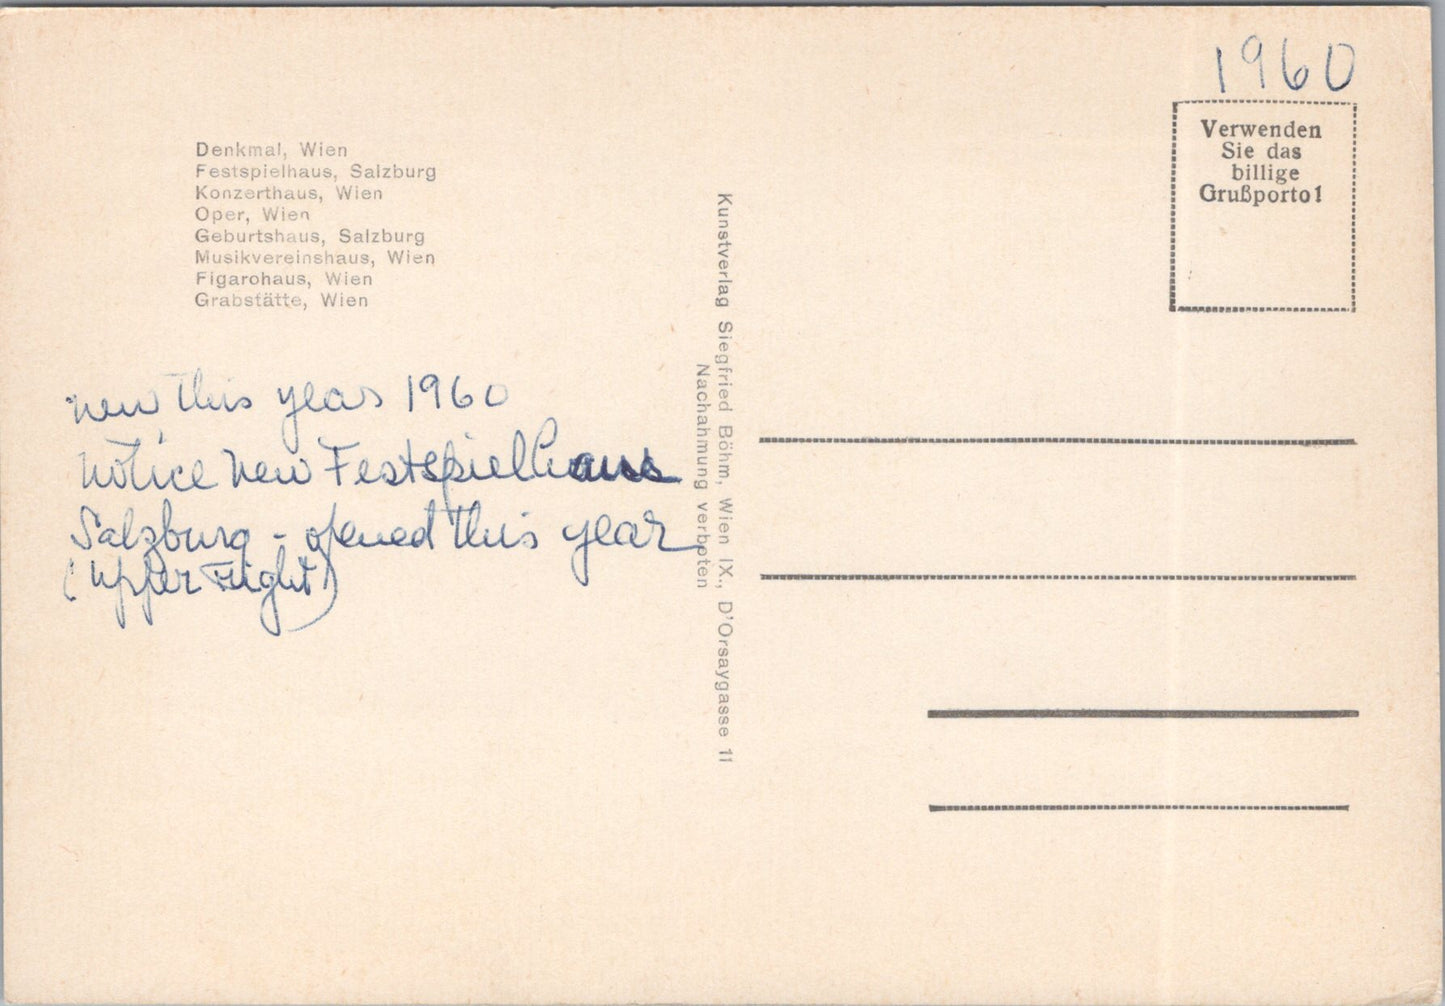 1960
Verwenden
Sie das
billige
Grußporto!
Denkmal, Wien
Festspielhaus, Salzburg
Konzerthaus, Wien
Oper, Wien
Geburtshaus, Salzburg
Musikvereinshaus, Wien
Figarohaus, Wien
Grabstätte, Wien
new this year 1960
notice new Festspielhaus
Salzburg - opened this year
(upper right)
Kunstverlag Siegfried Böhm, Wien IX., D'Orsaygasse 11
Nachahmung verboten